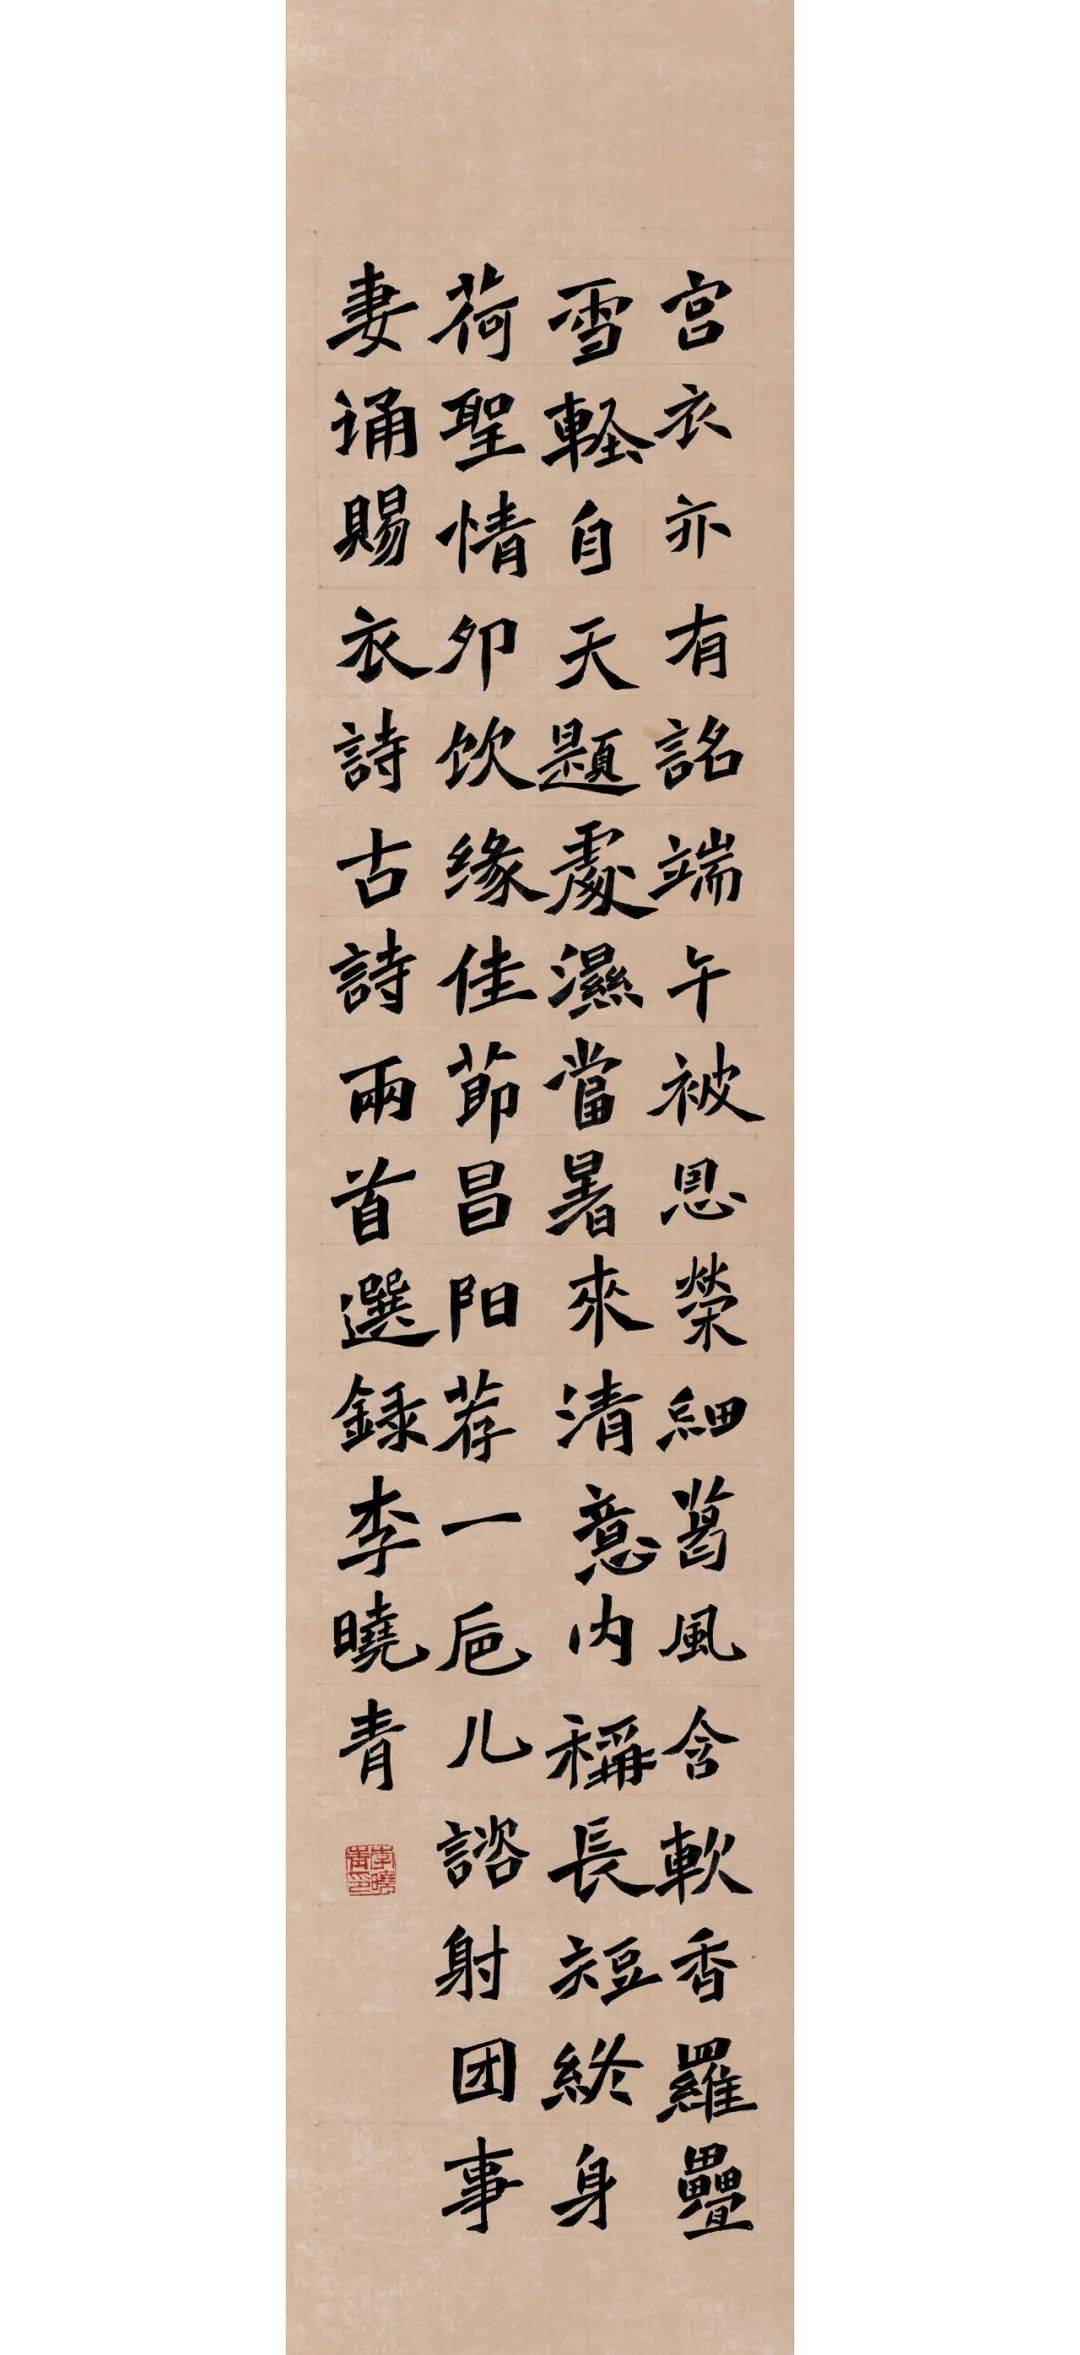 宫衣亦有詺端午被恩榮細葛風含軟香羅疊
雪軽自天題處濕當暑來清意内稱長短終身
荷聖情卯饮缘佳節昌阳荐一巵儿諮射团事
妻诵賜衣詩古詩兩首選録李曉青
李曉青印